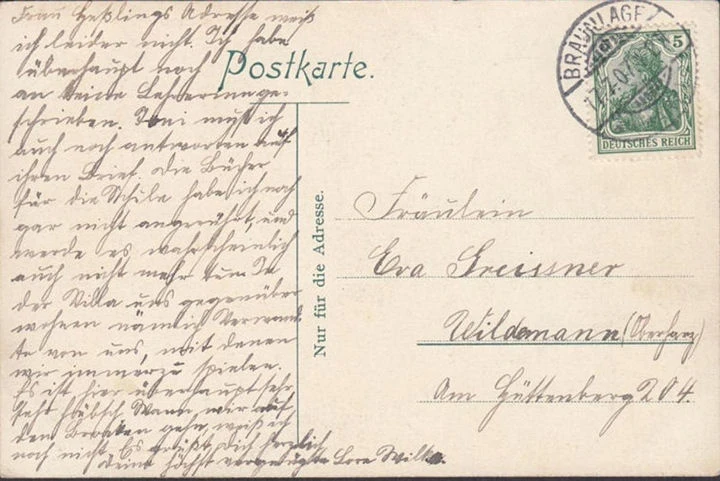 Frau Heßlings Adresse weiß
ich leider nicht. Ich habe
überhaupt noch
an keine Lehrerin ge-
schrieben. Toni muß ich
auch noch antworten auf
ihren Brief. Die Bücher
für die Schule habe ich noch
gar nicht angerührt, und
werde es wahrscheinlich
auch nicht mehr tun. In
der Villa uns gegenüber
wohnen nämlich Verwand-
te von uns, mit denen
wir immerzu spielen.
Es ist hier überhaupt sehr
sehr hübsch. Wann wir auf
den Brocken gehn, weiß ich
noch nicht. Es grüßt Dich herzlich
Deine höchst vergnügte Lore Wilke.
Postkarte.
Nur für die Adresse.
BRAUNLAGE
5
DEUTSCHES REICH
Fräulein
Eva Greissner
Wildemann (Oberharz)
Am Hüttenberg 204.